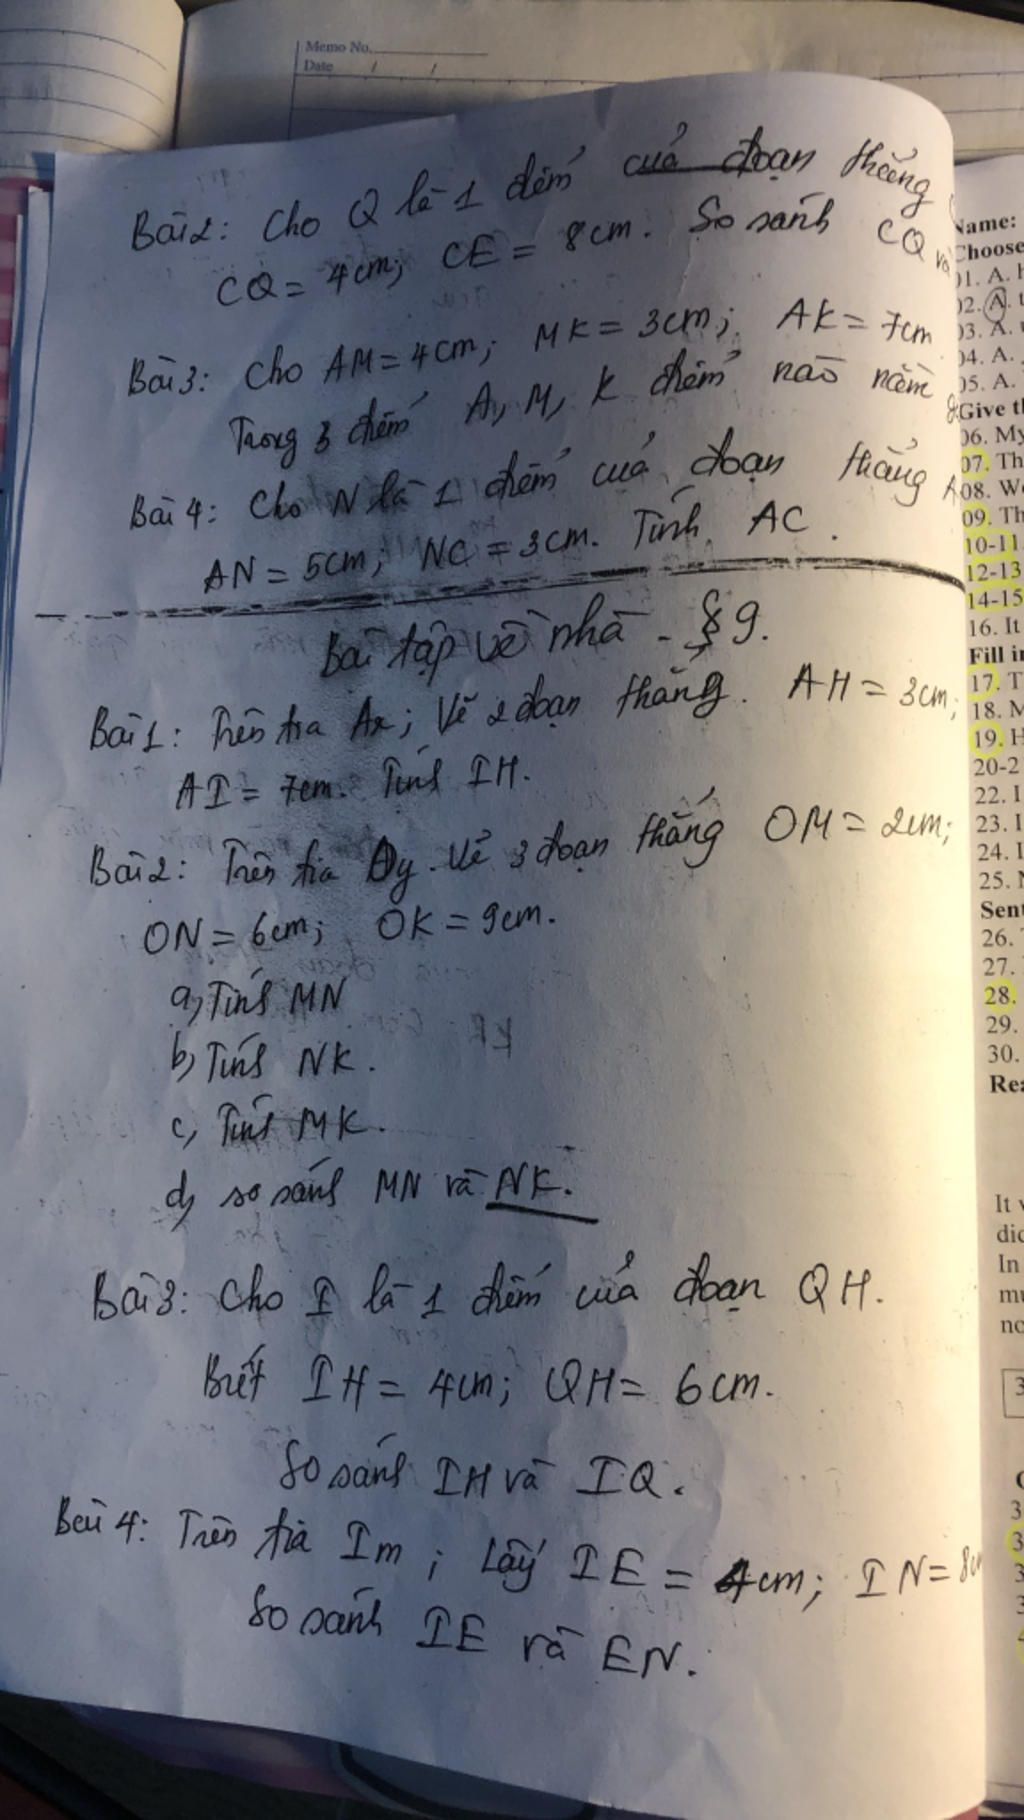 Memo No.
Date / /
Bài 2: Cho Q là 1 điểm của đoạn thẳng
CQ = 4cm; CE = 8cm. So sánh CQ và
Bài 3: Cho AM = 4cm; MK = 3cm; AK = 7cm
Trong 3 điểm A, M, K điểm nào nằm
Bài 4: Cho N là 1 điểm của đoạn thẳng A
AN = 5cm; NC = 3cm. Tính AC.
Bài tập về nhà - §9.
Bài 1: Trên tia Ax; Vẽ 2 đoạn thẳng. AH = 3cm;
AI = 7cm. Tính IH.
Bài 2: Trên tia Oy. Vẽ 3 đoạn thẳng OM = 2cm;
ON = 6cm; OK = 9cm.
a, Tính MN
b, Tính NK.
c, Tính MK.
d, so sánh MN và NK.
Bài 3: Cho I là 1 điểm của đoạn QH.
Biết IH = 4cm; QH = 6cm.
So sánh IH và IQ.
Bài 4: Trên tia Im; Lấy IE = 4cm; IN = 8cm
So sánh IE và EN.
Name:
Choose
01. A.
02. A.
03. A.
04. A.
05. A.
Give th
06. My
07. Th
08. We
09. Th
10-11.
12-13
14-15
16. It
Fill in
17. T
18. M
19. H
20-2
22. I
23. I
24. I
25. N
Sent
26.
27.
28.
29.
30.
Rea
It
did
In
mu
no